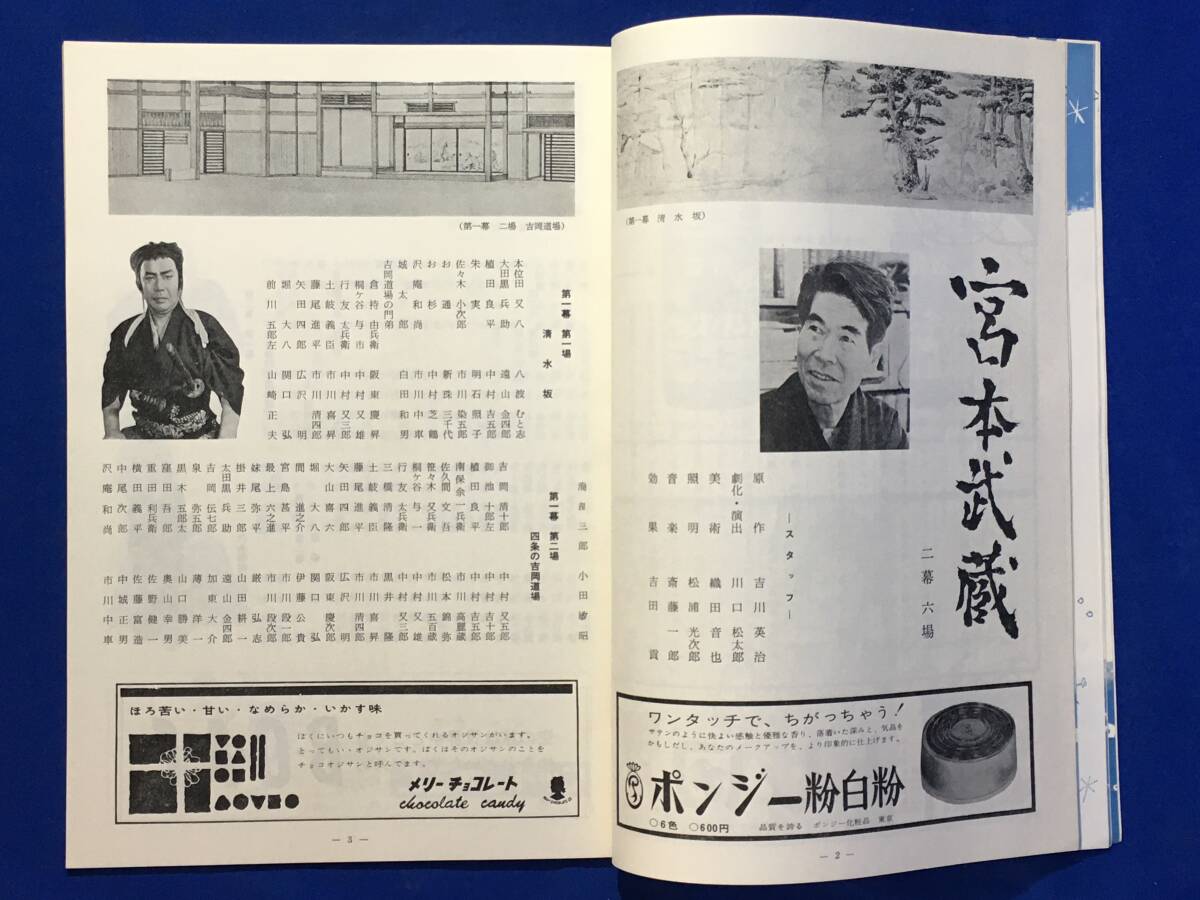 (第一幕 清水坂)
宮本武蔵
二幕六場
―スタッフ―
原作 吉川英治
劇化・演出 川口松太郎
美術 織田音也
照明 松浦光次郎
音楽 斎藤一郎
効果 吉田貢
ワンタッチで、ちがっちゃう!
サテンのように快よい感触と優雅な香り、落着いた深みと、気品を
かもしだし、あなたのメークアップを、より印象的に仕上げます。
ポンジー粉白粉
○6色 ○600円
品質を誇る ポンジー化粧品 東京
― 2 ―
(第一幕 二場 吉岡道場)
第一幕 第一場
清水坂
本位田又八 八波むと志
大田黒兵助 遠山金四郎
植田良平 中村吉五郎
朱実 明石照子
佐々木小次郎 市川染五郎
お通 新珠三千代
お杉 中村芝鶴
沢庵和尚 市川中車
城太郎 白田和男
吉岡道場の門弟
倉持由兵衛 阪東慶昇
桐ケ谷与市 中村又雄
行友太兵衛 中村又三郎
土岐義臣 市川喜昇
藤尾進平 市川清四郎
矢田四郎 広沢明
堀大八 関口弘
前川五郎左 山崎正夫
三郎 小田敏昭
第一幕 第二場
四条の吉岡道場
吉岡清十郎 中村又五郎
御池十郎左 中村吉十郎
植田良平 中村吉五郎
南保余一兵衛 市川高麗蔵
佐久間文吾 松本錦弥
笹々木又兵衛 市川五百蔵
桐ケ谷与一 中村又雄
行友太兵衛 中村又三郎
三橋清隆 黒井隆
土岐義臣 市川喜昇
藤尾進平 市川清四郎
矢田四郎 広沢明
大山喜六 阪東慶次郎
堀大八 関口弘
間進之介 伊藤公貴
宮島甚平 市川段一郎
最上六之進 市川段次郎
妹尾弥平 厳弘志
掛井三郎 山田耕一
太田黒兵助 遠山金四郎
吉岡伝七郎 加東大介
泉弥五郎 薄洋一
黒木五郎太 山口勝美
窪田吾郎 奥山幸男
重田利兵衛 佐野健一
横田平 佐藤富造
中尾次郎 中城正男
沢庵和尚 市川中車
ほろ苦い・甘い・なめらか・いかす味
ぼくにいつもチョコを買ってくれるオジサンがいます。
とってもいゝオジサンです。ぼくはそのオジサンのことを
チョコオジサンと呼んでます。
メリーチョコレート
chocolate candy
― 3 ―